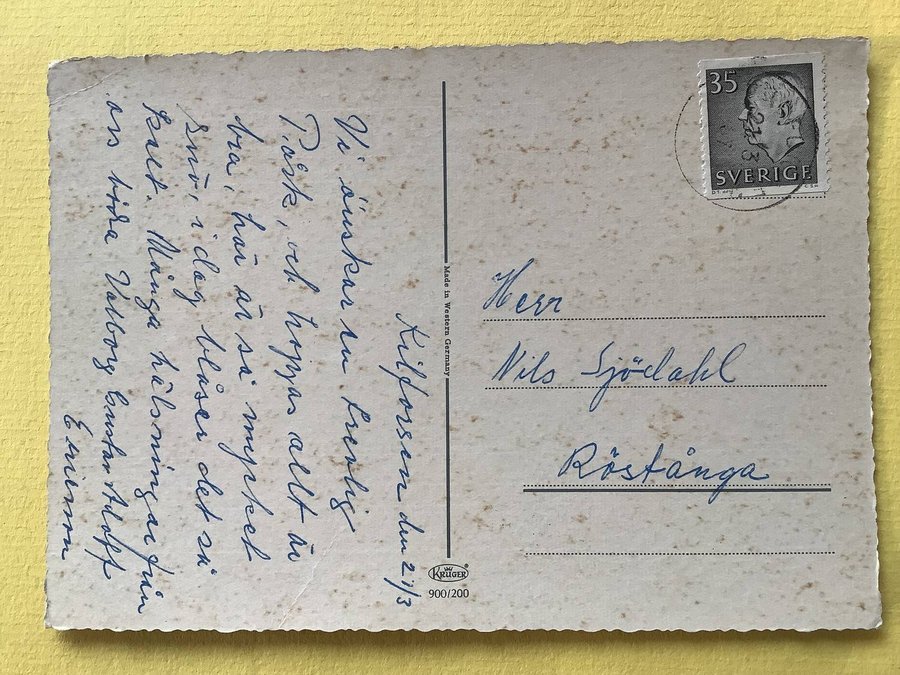 Kilforsen den 21/3
Vi önskar en trevlig
Påsk, och hoppas allt är
bra, här är så mycket
snö, i dag blåser det så
kallt. Många hälsningar från
oss båda Valborg Gustav Adolf
Made in Western Germany
KRÜGER
900/200
35
SVERIGE
21 3
Herr
Nils Sjödahl
Röstånga